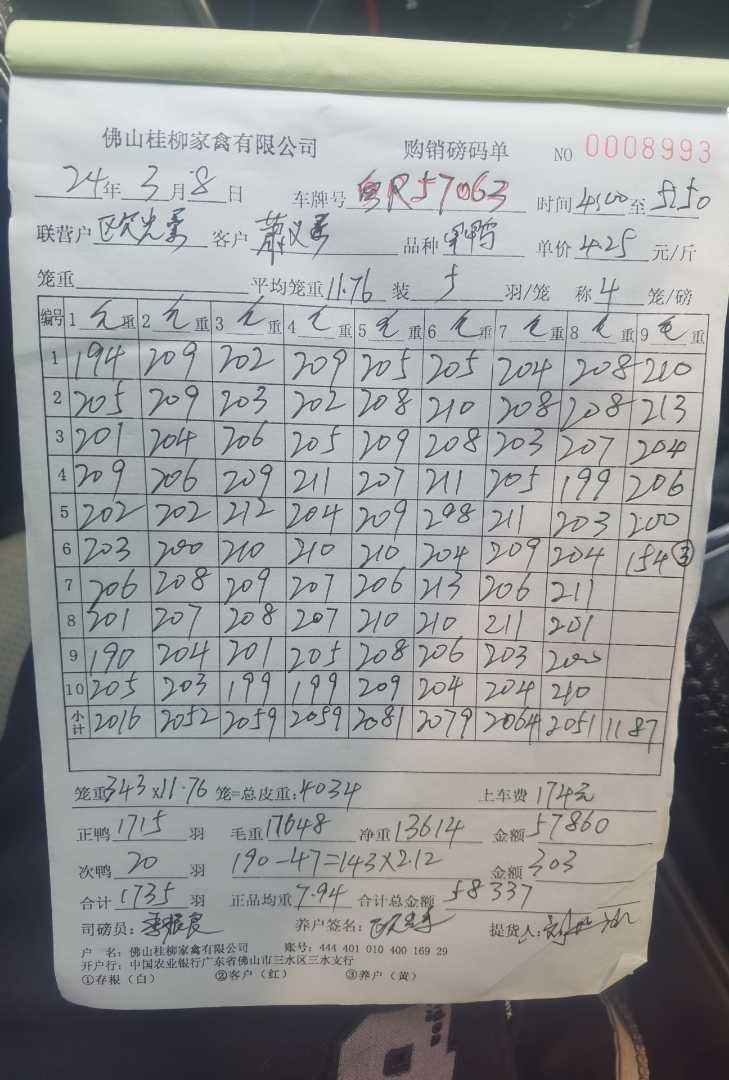 佛山桂柳家禽有限公司 购销磅码单 NO 0008993
24年3月8日 车牌号粤R57063 时间4:00至5:50
联营户 客户 品种 鸭 单价4.25元/斤
笼重 平均笼重11.76 装5羽/笼 称4笼/磅
编号 1毛重 2毛重 3毛重 4毛重 5毛重 6毛重 7毛重 8毛重 9毛重
1 194 209 202 209 205 205 204 208 210
2 205 209 203 202 208 210 208 208 213
3 201 204 206 205 209 208 203 207 204
4 209 206 209 211 207 211 205 199 206
5 202 202 212 204 209 208 211 203 200
6 203 200 210 210 210 204 209 204 154③
7 206 208 209 207 206 213 206 211
8 201 207 208 207 210 210 211 201
9 190 204 201 205 208 206 203 200
10 205 203 199 199 209 204 204 210
小计 2016 2052 2059 2059 2081 2079 2064 2051 1187
笼重343×11.76笼=总皮重:4034 上车费174元
正鸭1715羽 毛重17648 净重13614 金额57860
次鸭20羽 190-47=143×2.12 金额303
合计1735羽 正品均重7.94 合计总金额58337
司磅员: 养户签名: 提货人:
户 名:佛山桂柳家禽有限公司 账号:444 401 010 400 169 29
开户行:中国农业银行广东省佛山市三水区三水支行
①存根(白) ②客户(红) ③养户(黄)